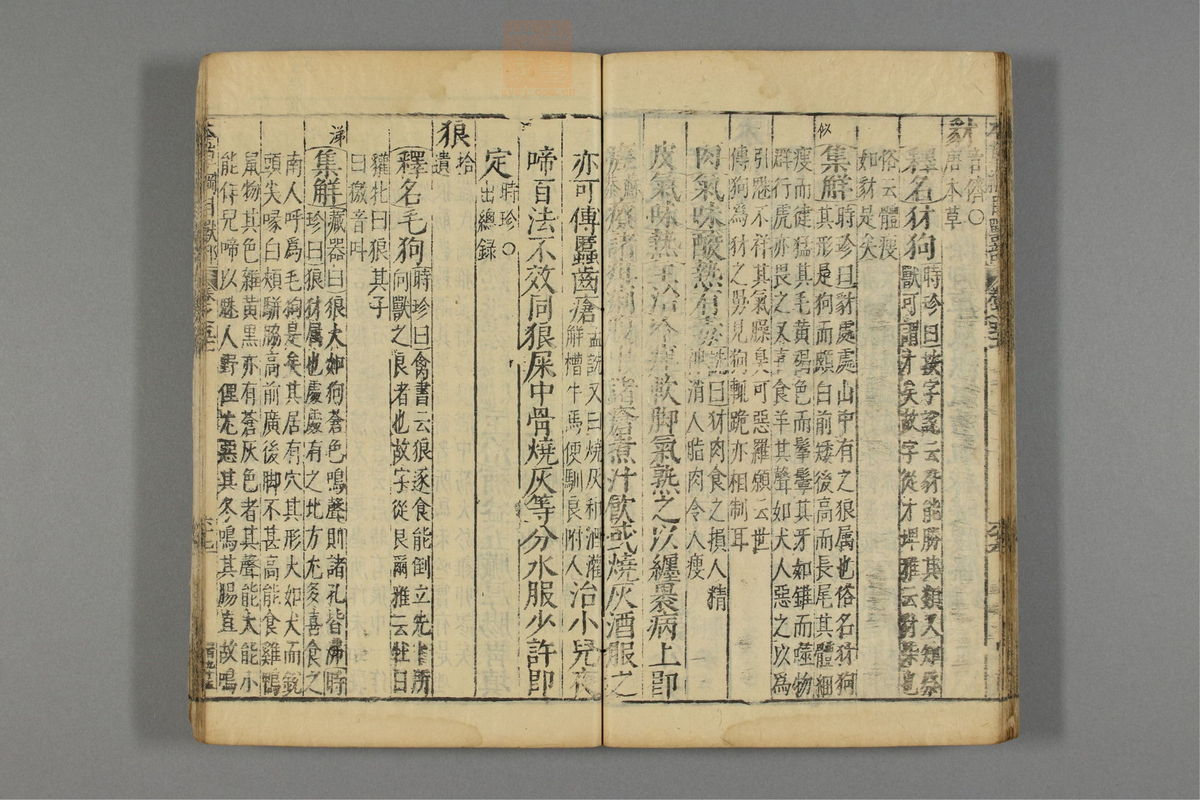 豺
音儕○
唐本草
釋名豺狗
時珍曰按字說云豺能勝其類又知祭
獸可謂才矣故字從才埤雅云豺柴也
俗云體瘦
如豺是矣
集解
時珍曰豺處處山中有之狼屬也俗名豺狗
其形似狗而頗白前矮後高而長尾其體細
瘦而健猛其毛黃褐色而鬇鬡其牙如錐而噬物
群行虎亦畏之又喜食羊其聲如犬人惡之以爲
引魅不祥其氣臊臭可惡羅願云世
傳狗爲豺之舅見狗輒跪亦相制耳
肉氣味酸熱有毒
詵曰豺肉食之損人精
神消人脂肉令人瘦
皮氣味熱
冷痺軟脚氣熟之以纏裹病上即
療諸疳
諸瘡煮汁飲或燒灰酒服之
亦可傅䘌齒瘡
孟詵又曰燒灰和酒灌
解槽牛馬便馴良附人
治小兒夜
啼百法不效同狼屎中骨燒灰等分水服少許即
定
時珍○
出總錄
狼
拾
遺
釋名毛狗
時珍曰禽書云狼逐食能倒立先卜所
向獸之良者也故字從良爾雅云牡曰
獾牝曰狼其子
曰獥音叫
集解
藏器曰狼大如狗蒼色鳴聲則諸孔皆沸時
珍曰狼豺屬也處處有之北方尤多喜食之
南人呼爲毛狗是矣其居有穴其形大如犬而銳
頭尖喙白頰駢脇高前廣後脚不甚高能食雞鴨
鼠物其色雜黃黑亦有蒼灰色者其聲能大能小
能作兒啼以魅人野俚尤惡其冬鳴其腸直故鳴